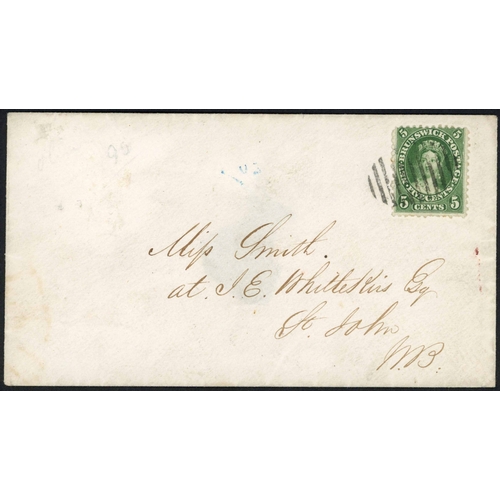 95
5 5
NEW BRUNSWICK POSTAGE
FIVE CENTS
5 CENTS 5
Miſs Smith.
at J. E. Whittekirs Esq
St. John
N.B.